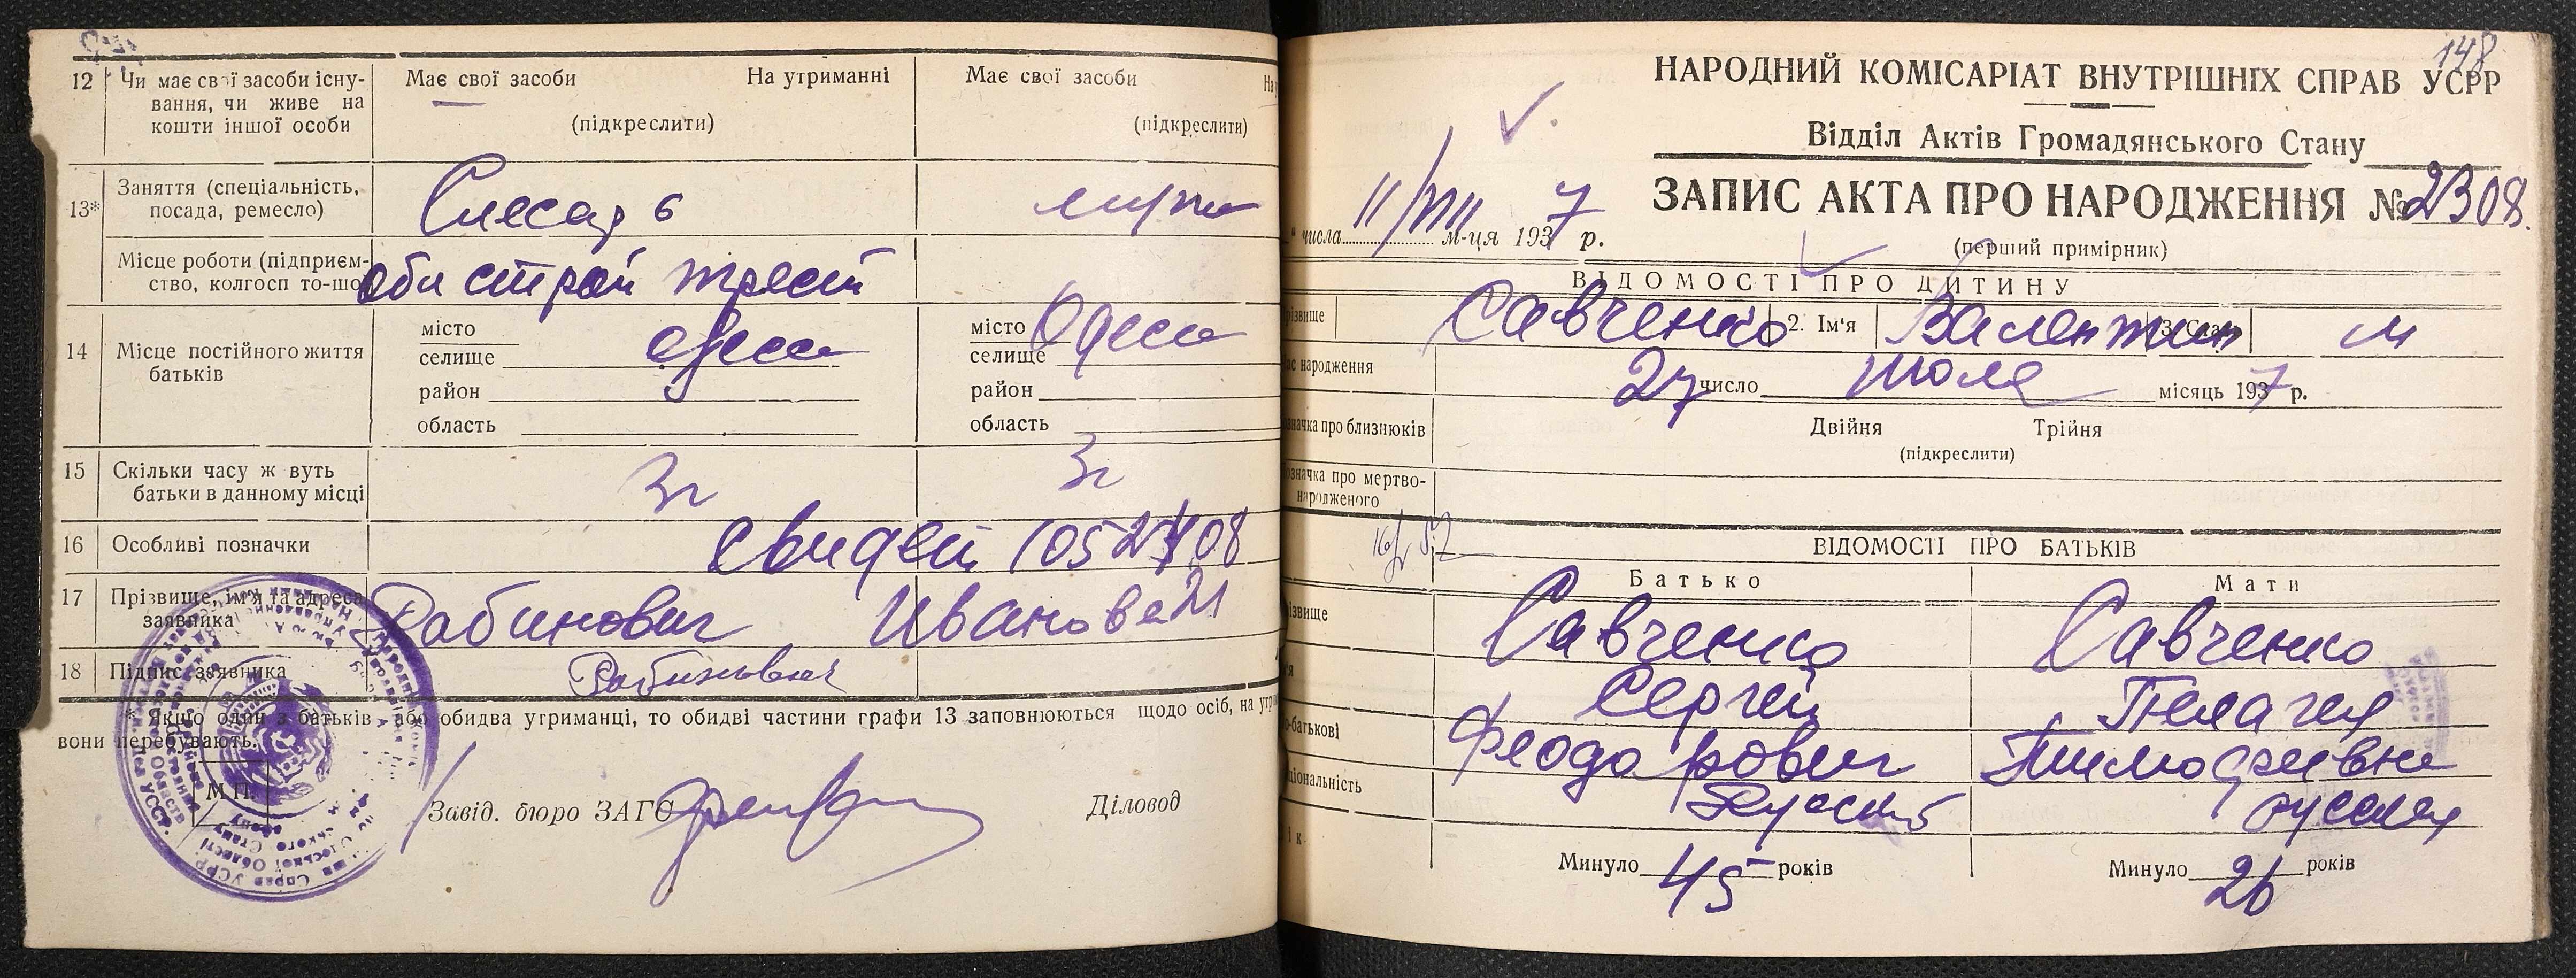 12 Чи має свої засоби існу-
вання, чи живе на
кошти іншої особи
Має свої засоби На утриманні
(підкреслити)
Має свої засоби На
(підкреслити)
13* Заняття (спеціальність,
посада, ремесло)
Слесар 6
Місце роботи (підприєм-
ство, колгосп то-що
Обл строй трест
14 Місце постійного життя
батьків
місто
селище Одесса
район
область
місто Одесса
селище
район
область
15 Скільки часу ж вуть
батьки в данному місці
3г 3г
16 Особливі позначки
свидет
17 Прізвище, ім'я та адреса
заявника
Рабинович Иванова 21
18 Підпис заявника
Рабинович
* Якщо один з батьків, або обидва утриманці, то обидві частини графи 13 заповнюються щодо осіб, на утри
вони перебувають.
М.П.
Завід. бюро ЗАГС Діловод
148
НАРОДНИЙ КОМІСАРІАТ ВНУТРІШНІХ СПРАВ УСРР
Відділ Актів Громадянського Стану
ЗАПИС АКТА ПРО НАРОДЖЕННЯ № 2308.
" числа 11/VIII м-ця 1937 р.
(перший примірник)
ВІДОМОСТІ ПРО ДИТИНУ
різвище Савченко 2. Ім'я Валентин 3. Стать м
ас народження 27 число июля місяць 1937 р.
значка про близнюків Двійня Трійня
(підкреслити)
означка про мертво-
народженого
ВІДОМОСТІ ПРО БАТЬКІВ
Батько Мати
ізвище Савченко Савченко
'я Сергей Пелагея
о-батькові Феодорович Тимофеевна
ціональність Русский русская
ік Минуло 45 років Минуло 26 років